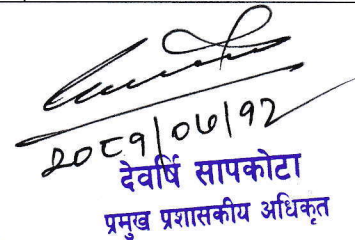 २०८१/०७/१२
देवर्षि सापकोटा
प्रमुख प्रशासकीय अधिकृत